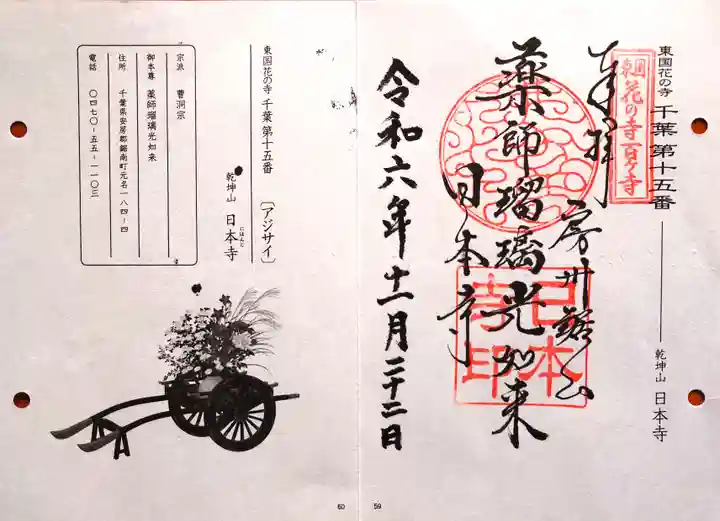 東国花の寺 千葉 第十五番
乾坤山 日本寺
東国花の寺百ヶ寺
奉拝
房州鋸山
薬師瑠璃光如来
日本寺
日本寺印
令和六年十一月二十二日
59
東国花の寺 千葉 第十五番
〔アジサイ〕
乾坤山 日本寺
にほんじ
宗派 曹洞宗
御本尊 薬師瑠璃光如来
住所 千葉県安房郡鋸南町元名一八四-四
電話 〇四七〇-五五-一一〇三
60